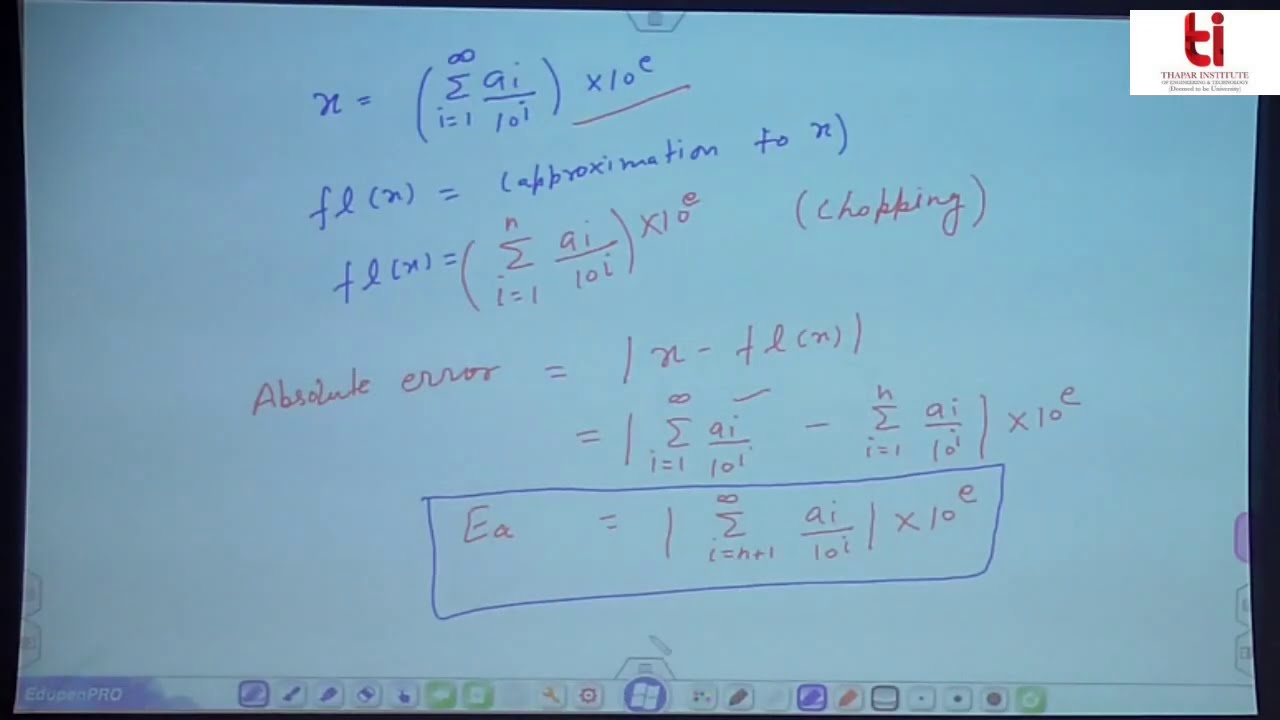 ti
THAPAR INSTITUTE
OF ENGINEERING & TECHNOLOGY
(Deemed to be University)
x = ( ∞ Σ i=1 ai/10^i ) ×10^e
fl(x) = (approximation to x)
fl(x) = ( n Σ i=1 ai/10^i ) ×10^e (Chopping)
Absolute error = | x - fl(x) |
= | ∞ Σ i=1 ai/10^i - n Σ i=1 ai/10^i | ×10^e
Ea = | ∞ Σ i=n+1 ai/10^i | ×10^e
EdupenPRO